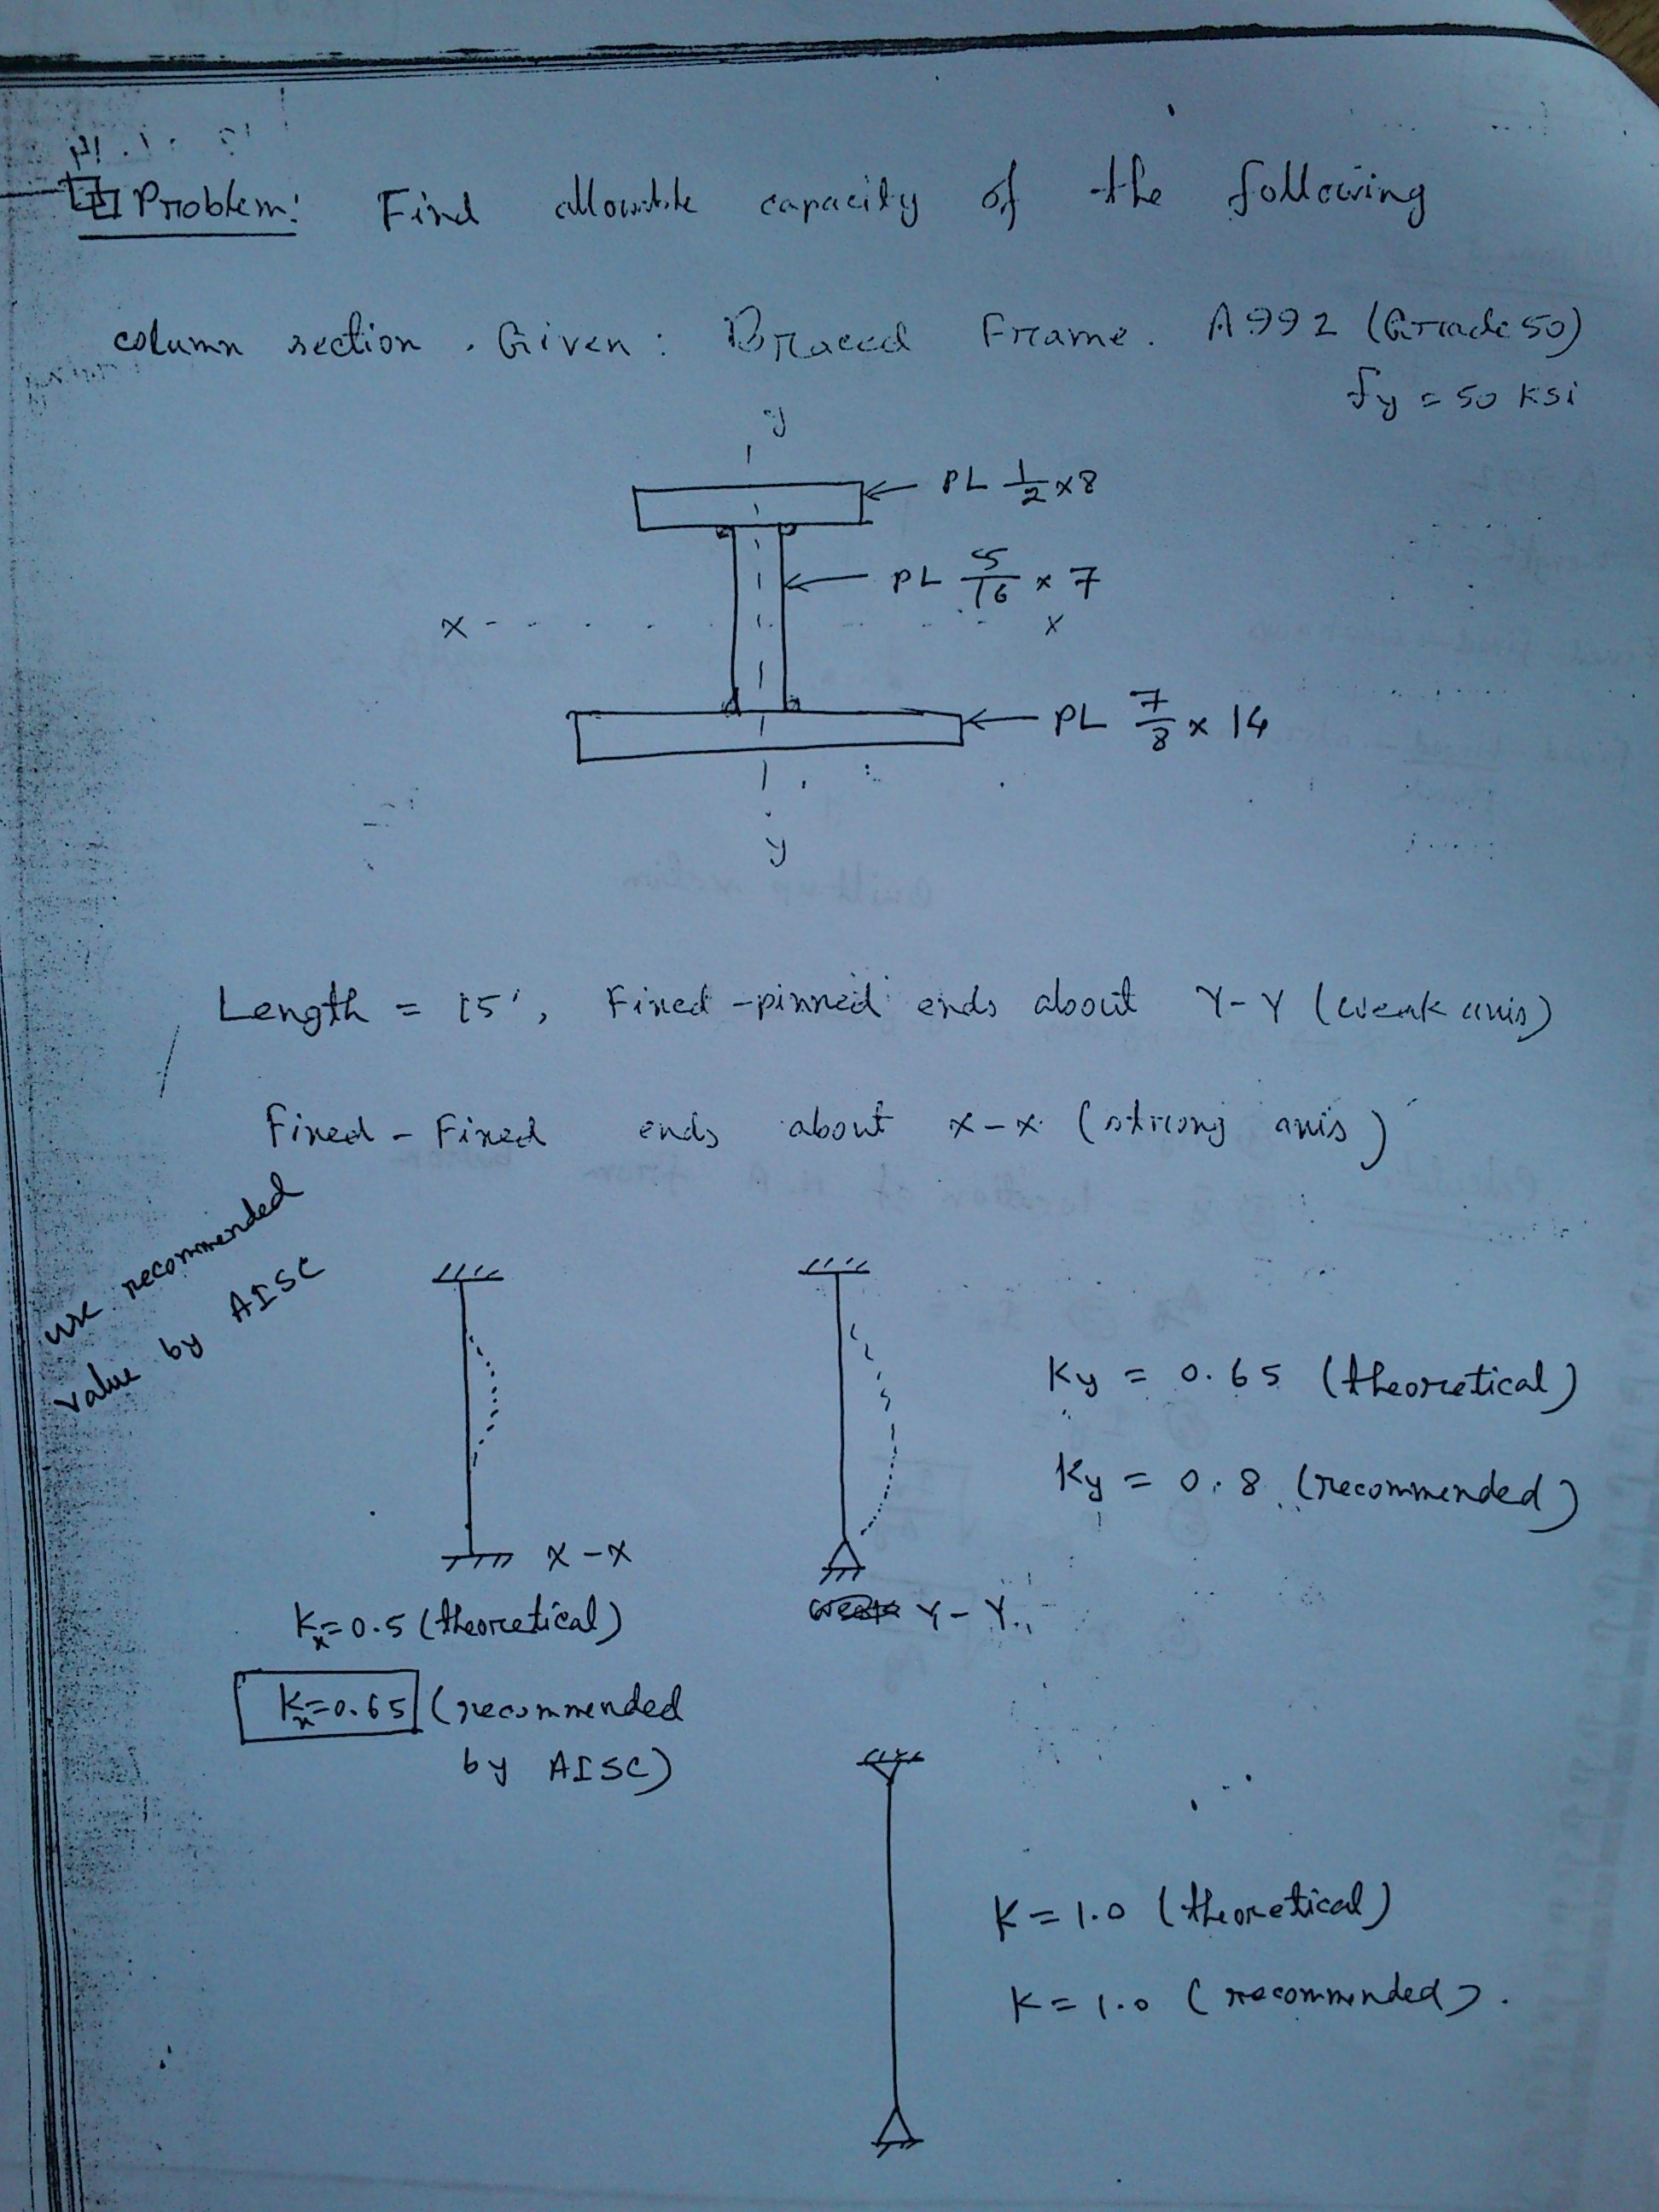 Problem: Find allowable capacity of the following
column section. Given: Braced Frame. A992 (Grade 50)
fy = 50 ksi
y
PL 1/2 x 8
PL 5/16 x 7
x x
PL 7/8 x 14
y
Length = 15', Fixed-pinned ends about Y-Y (weak axis)
Fixed-Fixed ends about x-x (strong axis)
use recommended
value by AISC
Ky = 0.65 (theoretical)
Ky = 0.8 (recommended)
X-X
Y-Y
Kx=0.5 (theoretical)
Kx=0.65 (recommended
by AISC)
K=1.0 (theoretical)
K=1.0 (recommended).